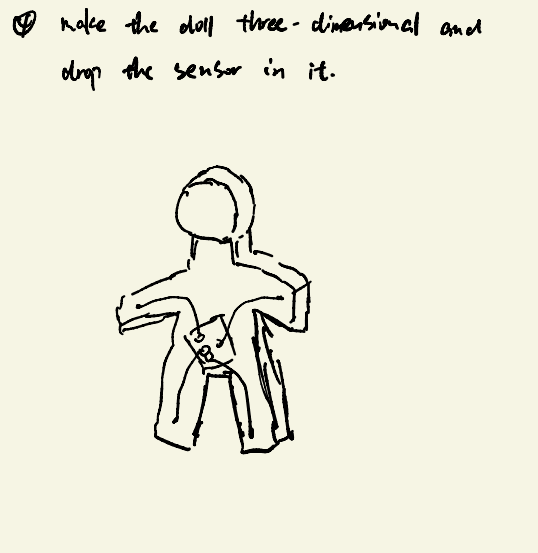 ④ make the doll three-dimensional and
drop the sensor in it.